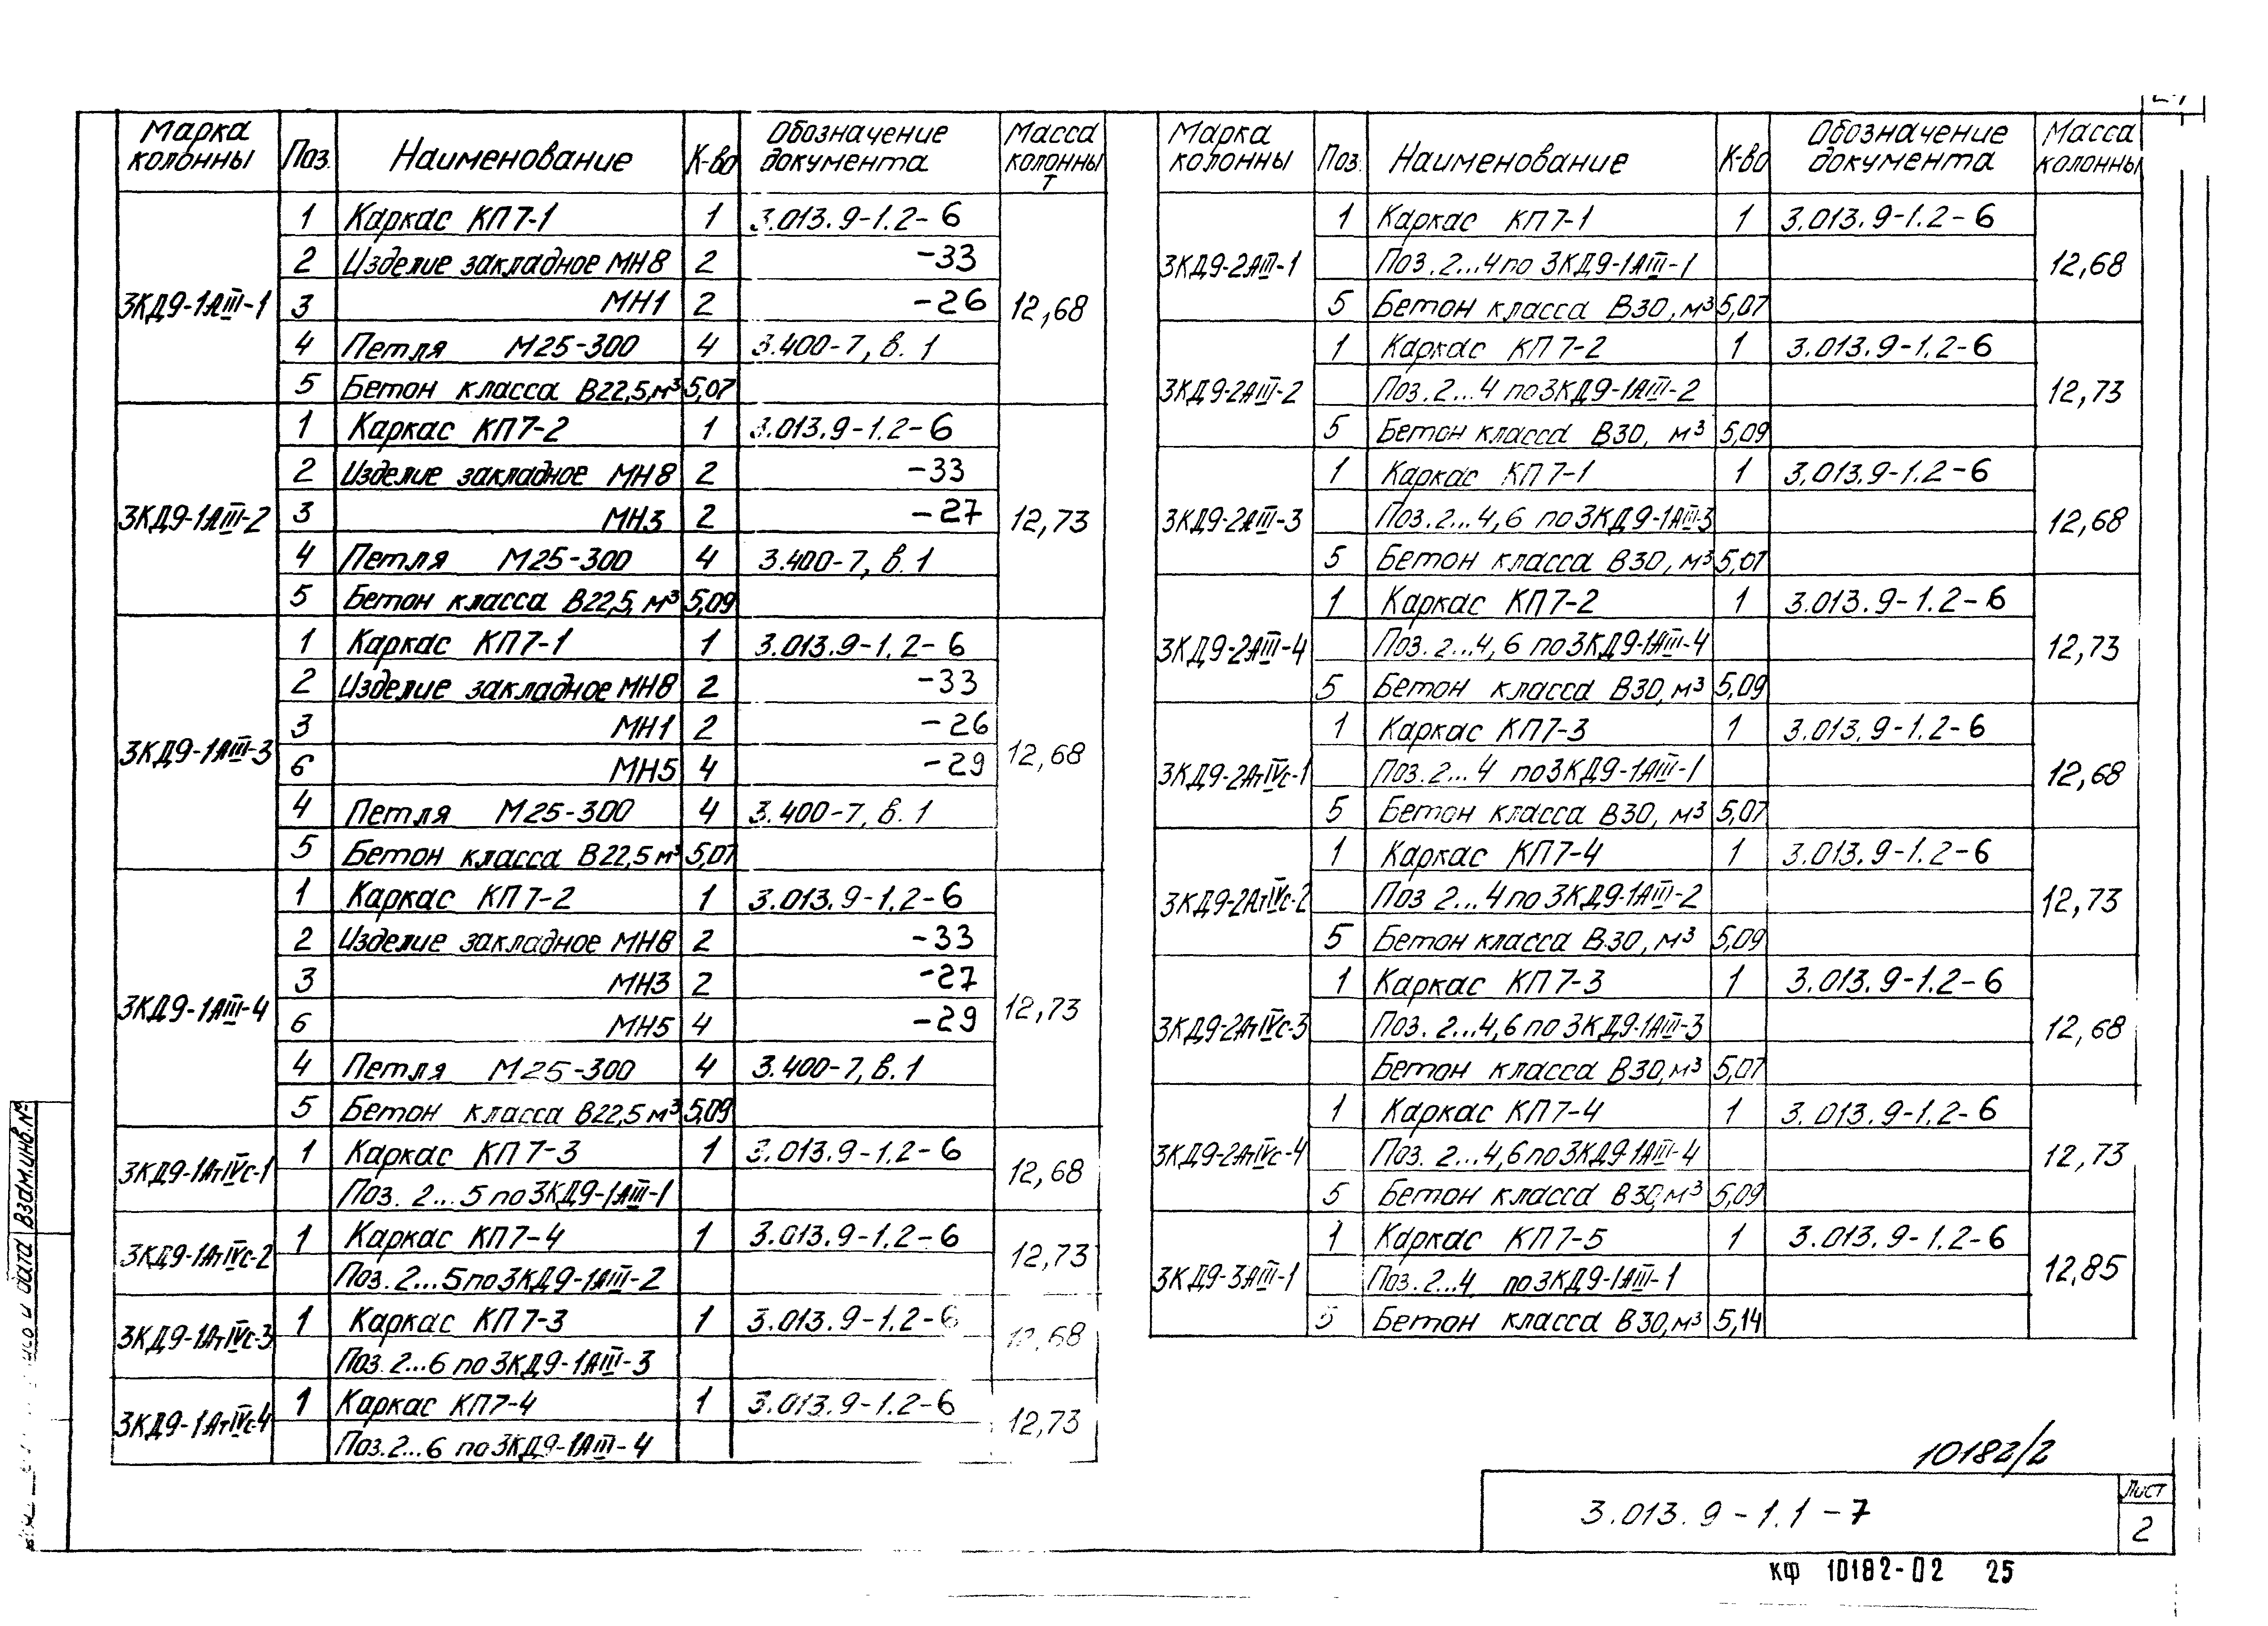 Марка колонны Поз. Наименование К-во Обозначение документа Масса колонны т
3КД9-1АIII-1 12,68
1 Каркас КП7-1 1 3.013.9-1.2-6
2 Изделие закладное МН8 2 -33
3 МН1 2 -26
4 Петля М25-300 4 3.400-7, в.1
5 Бетон класса В22,5, м³ 5,07
3КД9-1АIII-2 12,73
1 Каркас КП7-2 1 3.013.9-1.2-6
2 Изделие закладное МН8 2 -33
3 МН3 2 -27
4 Петля М25-300 4 3.400-7, в.1
5 Бетон класса В22,5, м³ 5,09
3КД9-1АIII-3 12,68
1 Каркас КП7-1 1 3.013.9-1.2-6
2 Изделие закладное МН8 2 -33
3 МН1 2 -26
6 МН5 4 -29
4 Петля М25-300 4 3.400-7, в.1
5 Бетон класса В22,5 м³ 5,07
3КД9-1АIII-4 12,73
1 Каркас КП7-2 1 3.013.9-1.2-6
2 Изделие закладное МН8 2 -33
3 МН3 2 -27
6 МН5 4 -29
4 Петля М25-300 4 3.400-7, в.1
5 Бетон класса В22,5 м³ 5,09
3КД9-1АтIVс-1 12,68
1 Каркас КП7-3 1 3.013.9-1.2-6
Поз. 2...5 по 3КД9-1АIII-1
3КД9-1АтIVс-2 12,73
1 Каркас КП7-4 1 3.013.9-1.2-6
Поз. 2...5 по 3КД9-1АIII-2
3КД9-1АтIVс-3 12,68
1 Каркас КП7-3 1 3.013.9-1.2-6
Поз. 2...6 по 3КД9-1АIII-3
3КД9-1АтIVс-4 12,73
1 Каркас КП7-4 1 3.013.9-1.2-6
Поз. 2...6 по 3КД9-1АIII-4
Марка колонны Поз. Наименование К-во Обозначение документа Масса колонны
3КД9-2АIII-1 12,68
1 Каркас КП7-1 1 3.013.9-1.2-6
Поз. 2...4 по 3КД9-1АIII-1
5 Бетон класса В30, м³ 5,07
3КД9-2АIII-2 12,73
1 Каркас КП7-2 1 3.013.9-1.2-6
Поз. 2...4 по 3КД9-1АIII-2
5 Бетон класса В30, м³ 5,09
3КД9-2АIII-3 12,68
1 Каркас КП7-1 1 3.013.9-1.2-6
Поз. 2...4,6 по 3КД9-1АIII-3
5 Бетон класса В30, м³ 5,07
3КД9-2АIII-4 12,73
1 Каркас КП7-2 1 3.013.9-1.2-6
Поз. 2...4,6 по 3КД9-1АIII-4
5 Бетон класса В30, м³ 5,09
3КД9-2АтIVс-1 12,68
1 Каркас КП7-3 1 3.013.9-1.2-6
Поз. 2...4 по 3КД9-1АIII-1
5 Бетон класса В30, м³ 5,07
3КД9-2АтIVс-2 12,73
1 Каркас КП7-4 1 3.013.9-1.2-6
Поз 2...4 по 3КД9-1АIII-2
5 Бетон класса В30, м³ 5,09
3КД9-2АтIVс-3 12,68
1 Каркас КП7-3 1 3.013.9-1.2-6
Поз. 2...4,6 по 3КД9-1АIII-3
Бетон класса В30, м³ 5,07
3КД9-2АтIVс-4 12,73
1 Каркас КП7-4 1 3.013.9-1.2-6
Поз. 2...4,6 по 3КД9-1АIII-4
5 Бетон класса В30, м³ 5,09
3КД9-3АIII-1 12,85
1 Каркас КП7-5 1 3.013.9-1.2-6
Поз. 2...4 по 3КД9-1АIII-1
5 Бетон класса В30, м³ 5,14
10182/2
3.013.9-1.1-7
Лист
2
КФ 10182-02 25
Взам.инв.№
и дата